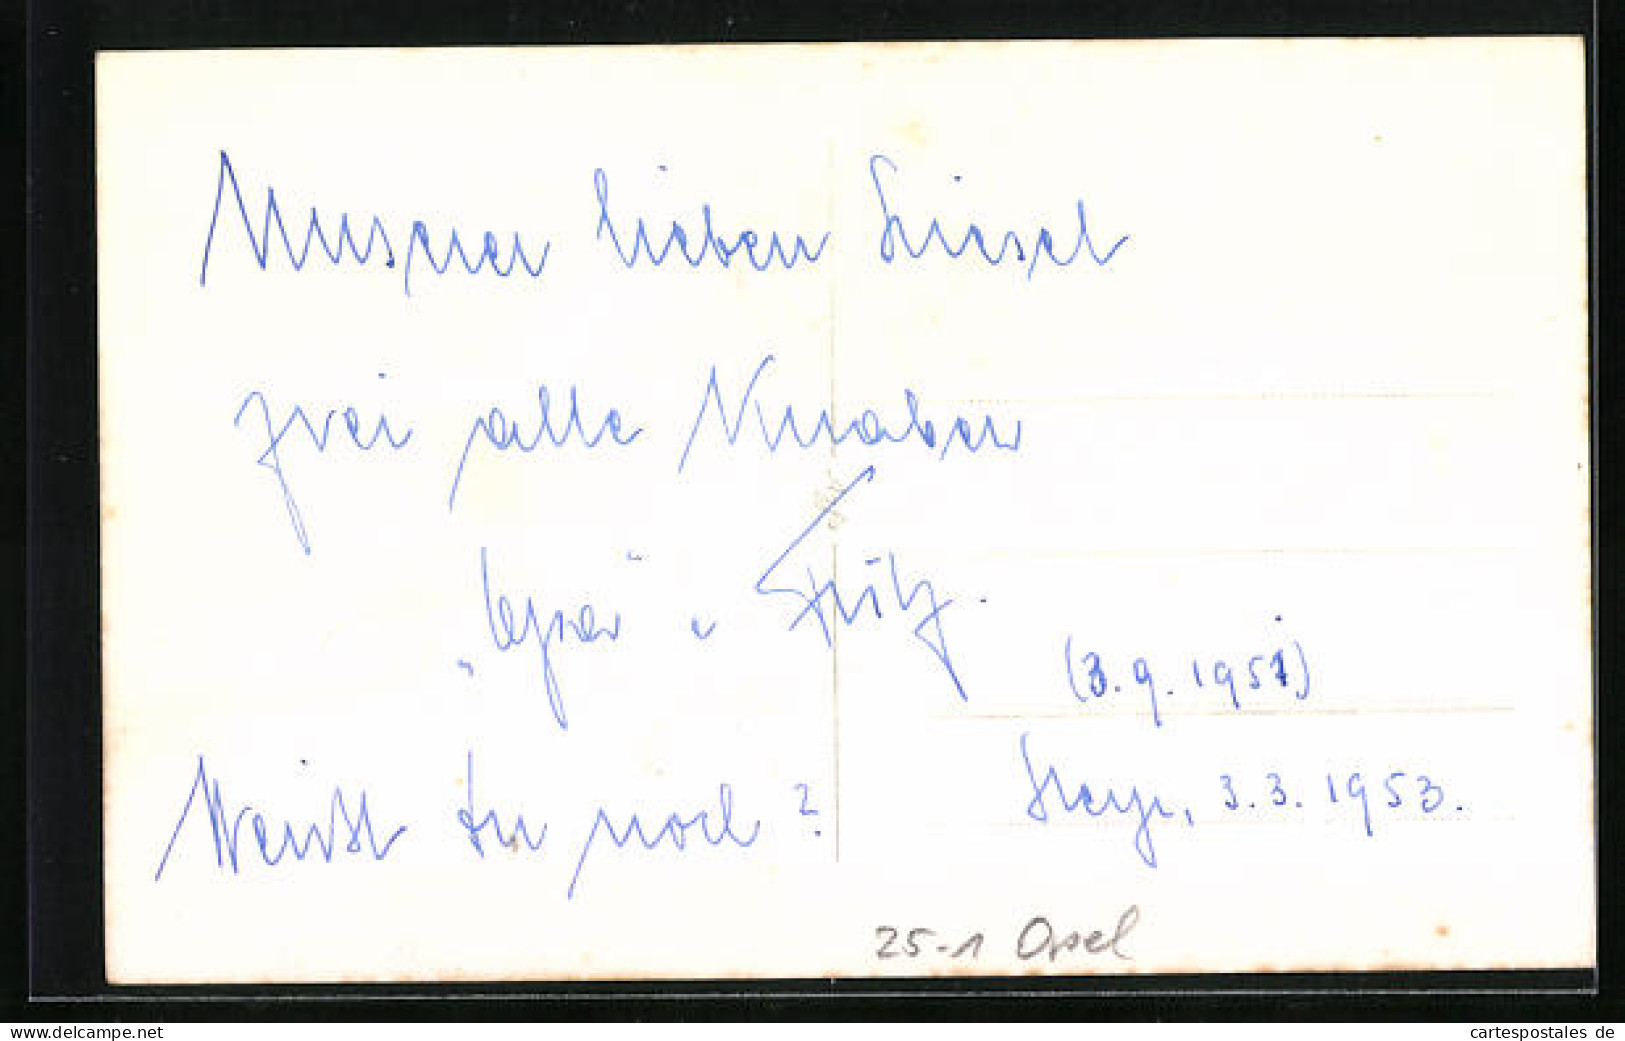 Unserer lieben Liesel
zwei alte Knaben
" u Fritz.
(3.9.1951)
Weißt du noch?
Steyr, 3.3.1953.
25-1 Esel
cartespostales de
www.delcampe.net